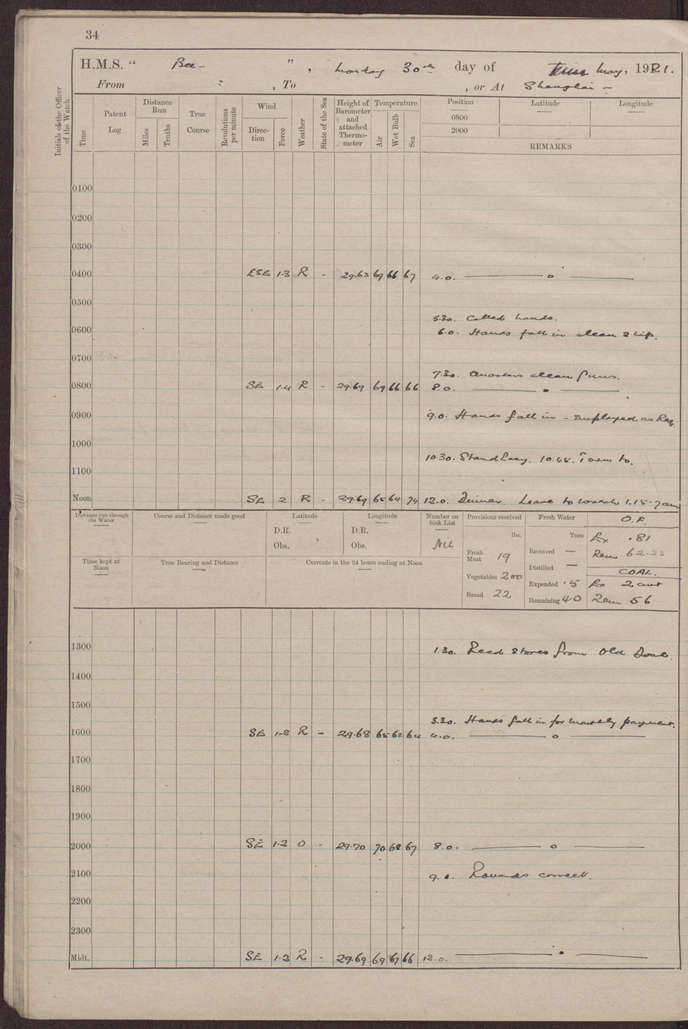 34
H.M.S. " Bee - ", Monday 30th day of May, 1921.
From : , To , or At Shanghai -
Initials of the Officer of the Watch.
Time
Patent Log
Distance Run
Miles
Tenths
True Course
Revolutions per minute
Wind
Direction
Force
Weather
State of the Sea
Height of Barometer and attached Thermometer
Temperature
Air
Wet Bulb
Sea
Position
Latitude
Longitude
0800
2000
REMARKS
0100
0200
0300
0400 ESE 1-3 R - 29.63 69 66 67 4.0. ——— o ———
0500
5.30. Called hands.
0600 6.0. Hands fall in clean ship.
0700
7.30. Quarters clean Guns.
0800 SE 1-4 R - 29.69 69 66 66 8.0. ——— o ———
0900 9.0. Hands fall in - employed as Req.
1000
10.30. Stand Easy. 10.45. Turn to.
1100
Noon SE 2 R - 29.69 65 64 74 12.0. Dinner Leave to watch 1.15 - 7 am
Distance run through the Water
Course and Distance made good
Latitude
Longitude
Number on Sick List
Provisions received
Fresh Water
O.F.
D.R.
D.R.
lbs.
Tons
Ex .81
Obs.
Obs.
Nil
Fresh Meat 19
Received —
Rem 62.22
Time kept at Noon
True Bearing and Distance
Currents in the 24 hours ending at Noon
Distilled —
COAL.
Vegetables 200
Expended .5
Ex 2 cwt
Bread 22
Remaining 40
Rem 56
1300 1.30. Recd Stores from Old Dock.
1400
1500
3.30. Hands fall in for monthly payment.
1600 SE 1-2 R - 29.68 65 62 64 4.0. ——— o ———
1700
1800
1900
2000 SE 1-2 O - 29.70 70 68 67 8.0. ——— o ———
2100 9.0. Rounds correct.
2200
2300
Midt. SE 1-2 R - 29.69 69 67 66 12.0. ——— o ———